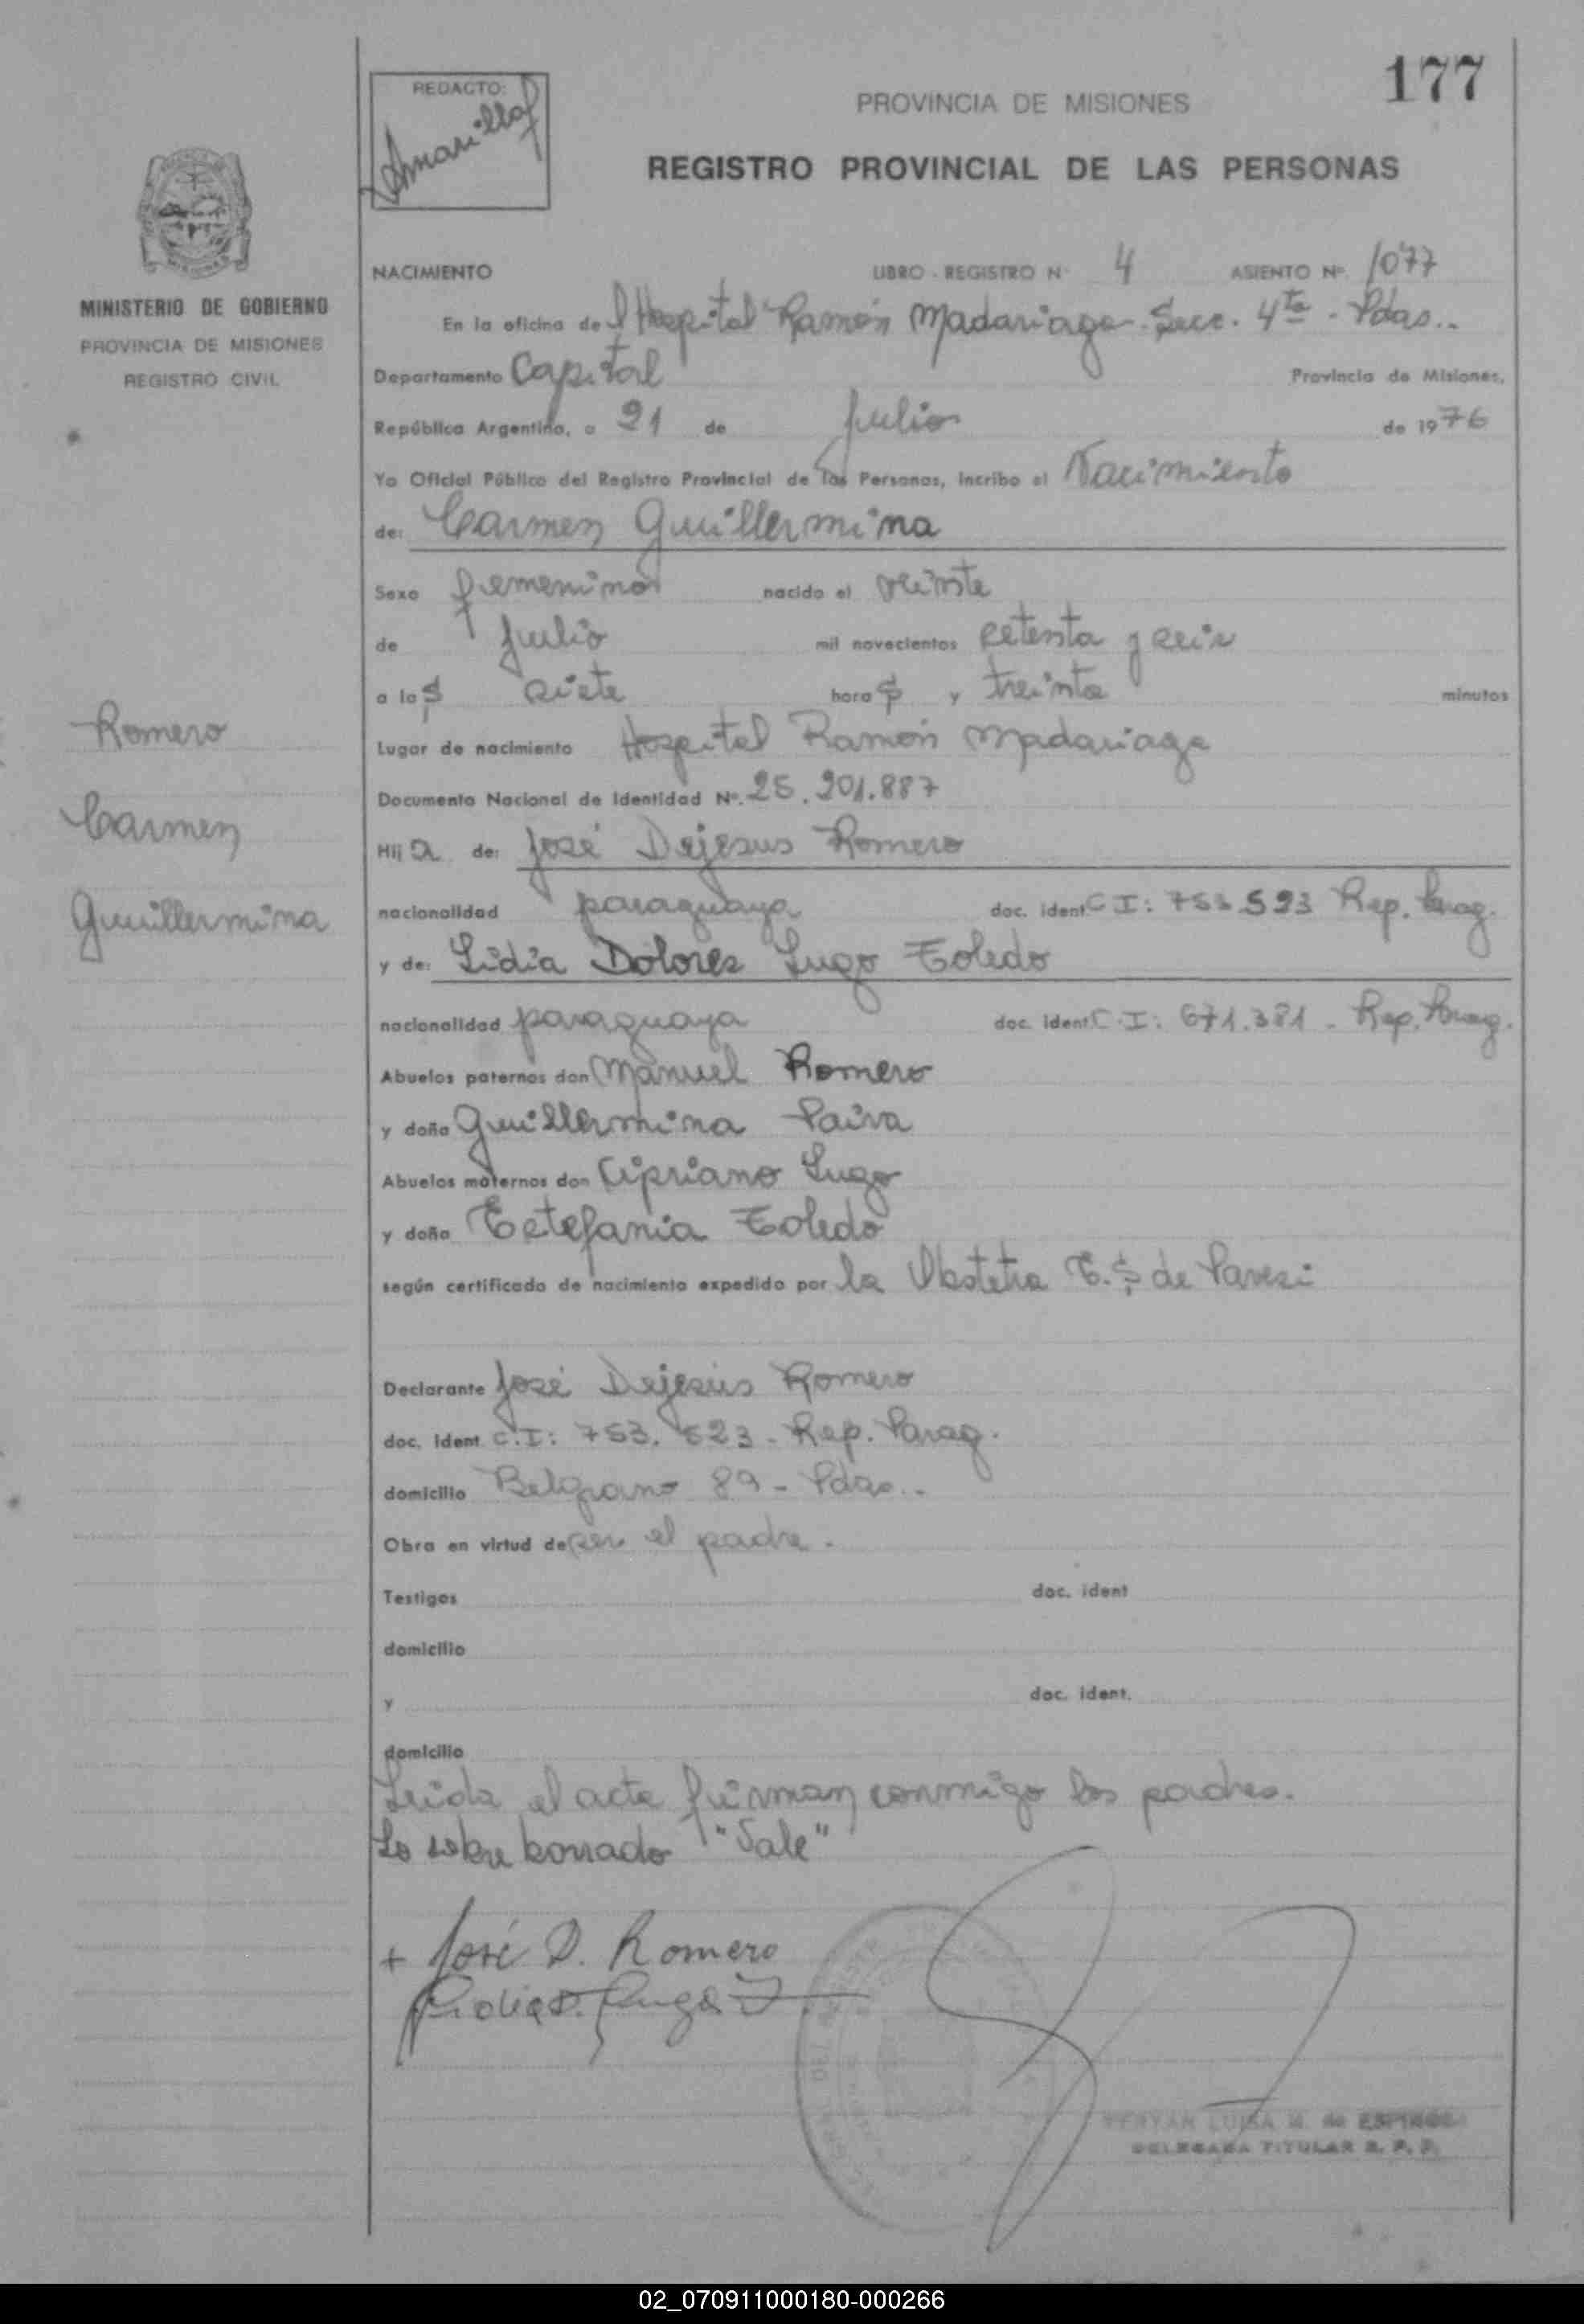 177
REDACTO:
Amarilla
PROVINCIA DE MISIONES
REGISTRO PROVINCIAL DE LAS PERSONAS
MINISTERIO DE GOBIERNO
PROVINCIA DE MISIONES
REGISTRO CIVIL
NACIMIENTO LIBRO - REGISTRO Nº 4 ASIENTO Nº 1077
En la oficina del Hospital Ramón Madariaga - Secc. 4ta - Pdas..
Departamento Capital Provincia de Misiones,
República Argentina, a 21 de Julio de 1976
Yo Oficial Público del Registro Provincial de las Personas, incribo el Nacimiento
de: Carmen Guillermina
Sexo femenino nacido el veinte
de julio mil novecientos setenta y seis
a las siete horas y treinta minutos
Romero
Carmen
Guillermina
Lugar de nacimiento Hospital Ramón Madariaga
Documento Nacional de Identidad Nº. 25.201.887
Hija de: José Dejesus Romero
nacionalidad paraguaya doc. ident C I: 753.523 Rep. Parag.
y de: Lidia Dolores Lugo Toledo
nacionalidad paraguaya doc. ident C.I: 671.381 - Rep. Parag.
Abuelos paternos don Manuel Romero
y doña Guillermina Paiva
Abuelos maternos don Cipriano Lugo
y doña Estefania Toledo
según certificado de nacimiento expedido por la Obstetra E.S de Pavesi
Declarante José Dejesús Romero
doc. ident C.I: 753.523 - Rep. Parag.
domicilio Belgrano 89 - Pdas..
Obra en virtud de ser el padre.
Testigos doc. ident
domicilio
y doc. ident.
domicilio
Leida el acta firman conmigo los padres.
Lo sobre borrado "Vale"
+ José D. Romero
Lidia D. Lugo T
LUISA M. de ESPINOSA
DELEGADA TITULAR R. P. P.
02_070911000180-000266